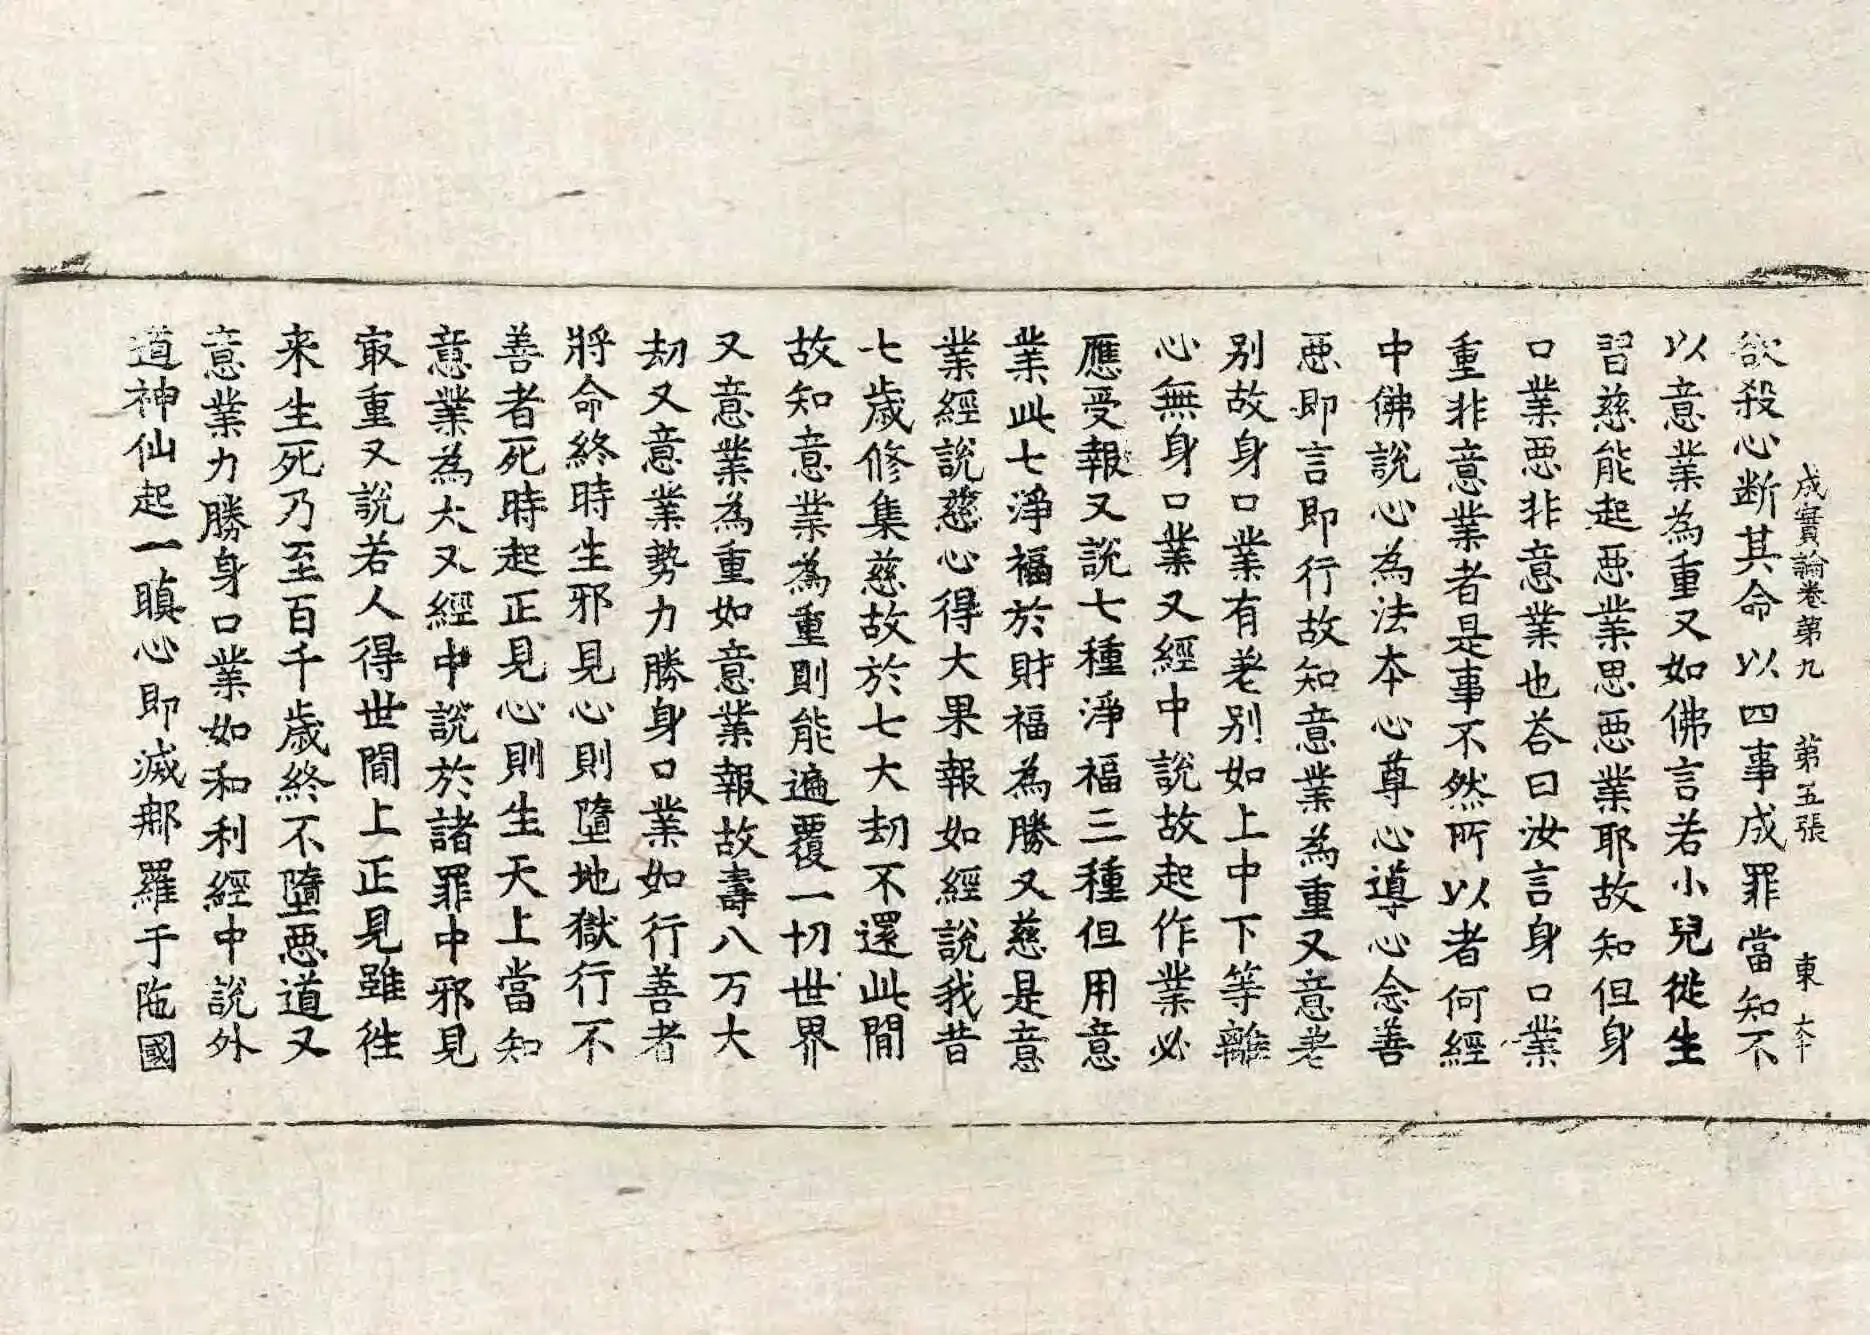 成實論卷第九 第五張 東
欲殺心断其命以四事成罪當知不
以意業為重又如佛言若小兒従生
習慈能起惡業思惡業耶故知但身
口業惡非意業也荅曰汝言身口業
重非意業者是事不然所以者何經
中佛說心為法本心尊心導心念善
惡即言即行故知意業為重又意差
別故身口業有差別如上中下等離
心無身口業又經中說故起作業必
應受報又說七種淨福三種但用意
業此七淨福於財福為勝又慈是意
業經說慈心得大果報如經說我昔
七歲修集慈故於七大劫不還此間
故知意業為重則能遍覆一切世界
又意業為重如意業報故壽八万大
劫又意業勢力勝身口業如行善者
將命終時生邪見心則墮地獄行不
善者死時起正見心則生天上當知
意業為大又經中說於諸罪中邪見
㝡重又說若人得世間上正見雖徃
来生死乃至百千歲終不墮惡道又
意業力勝身口業如和利經中說外
道神仙起一瞋心即滅那羅于陁國